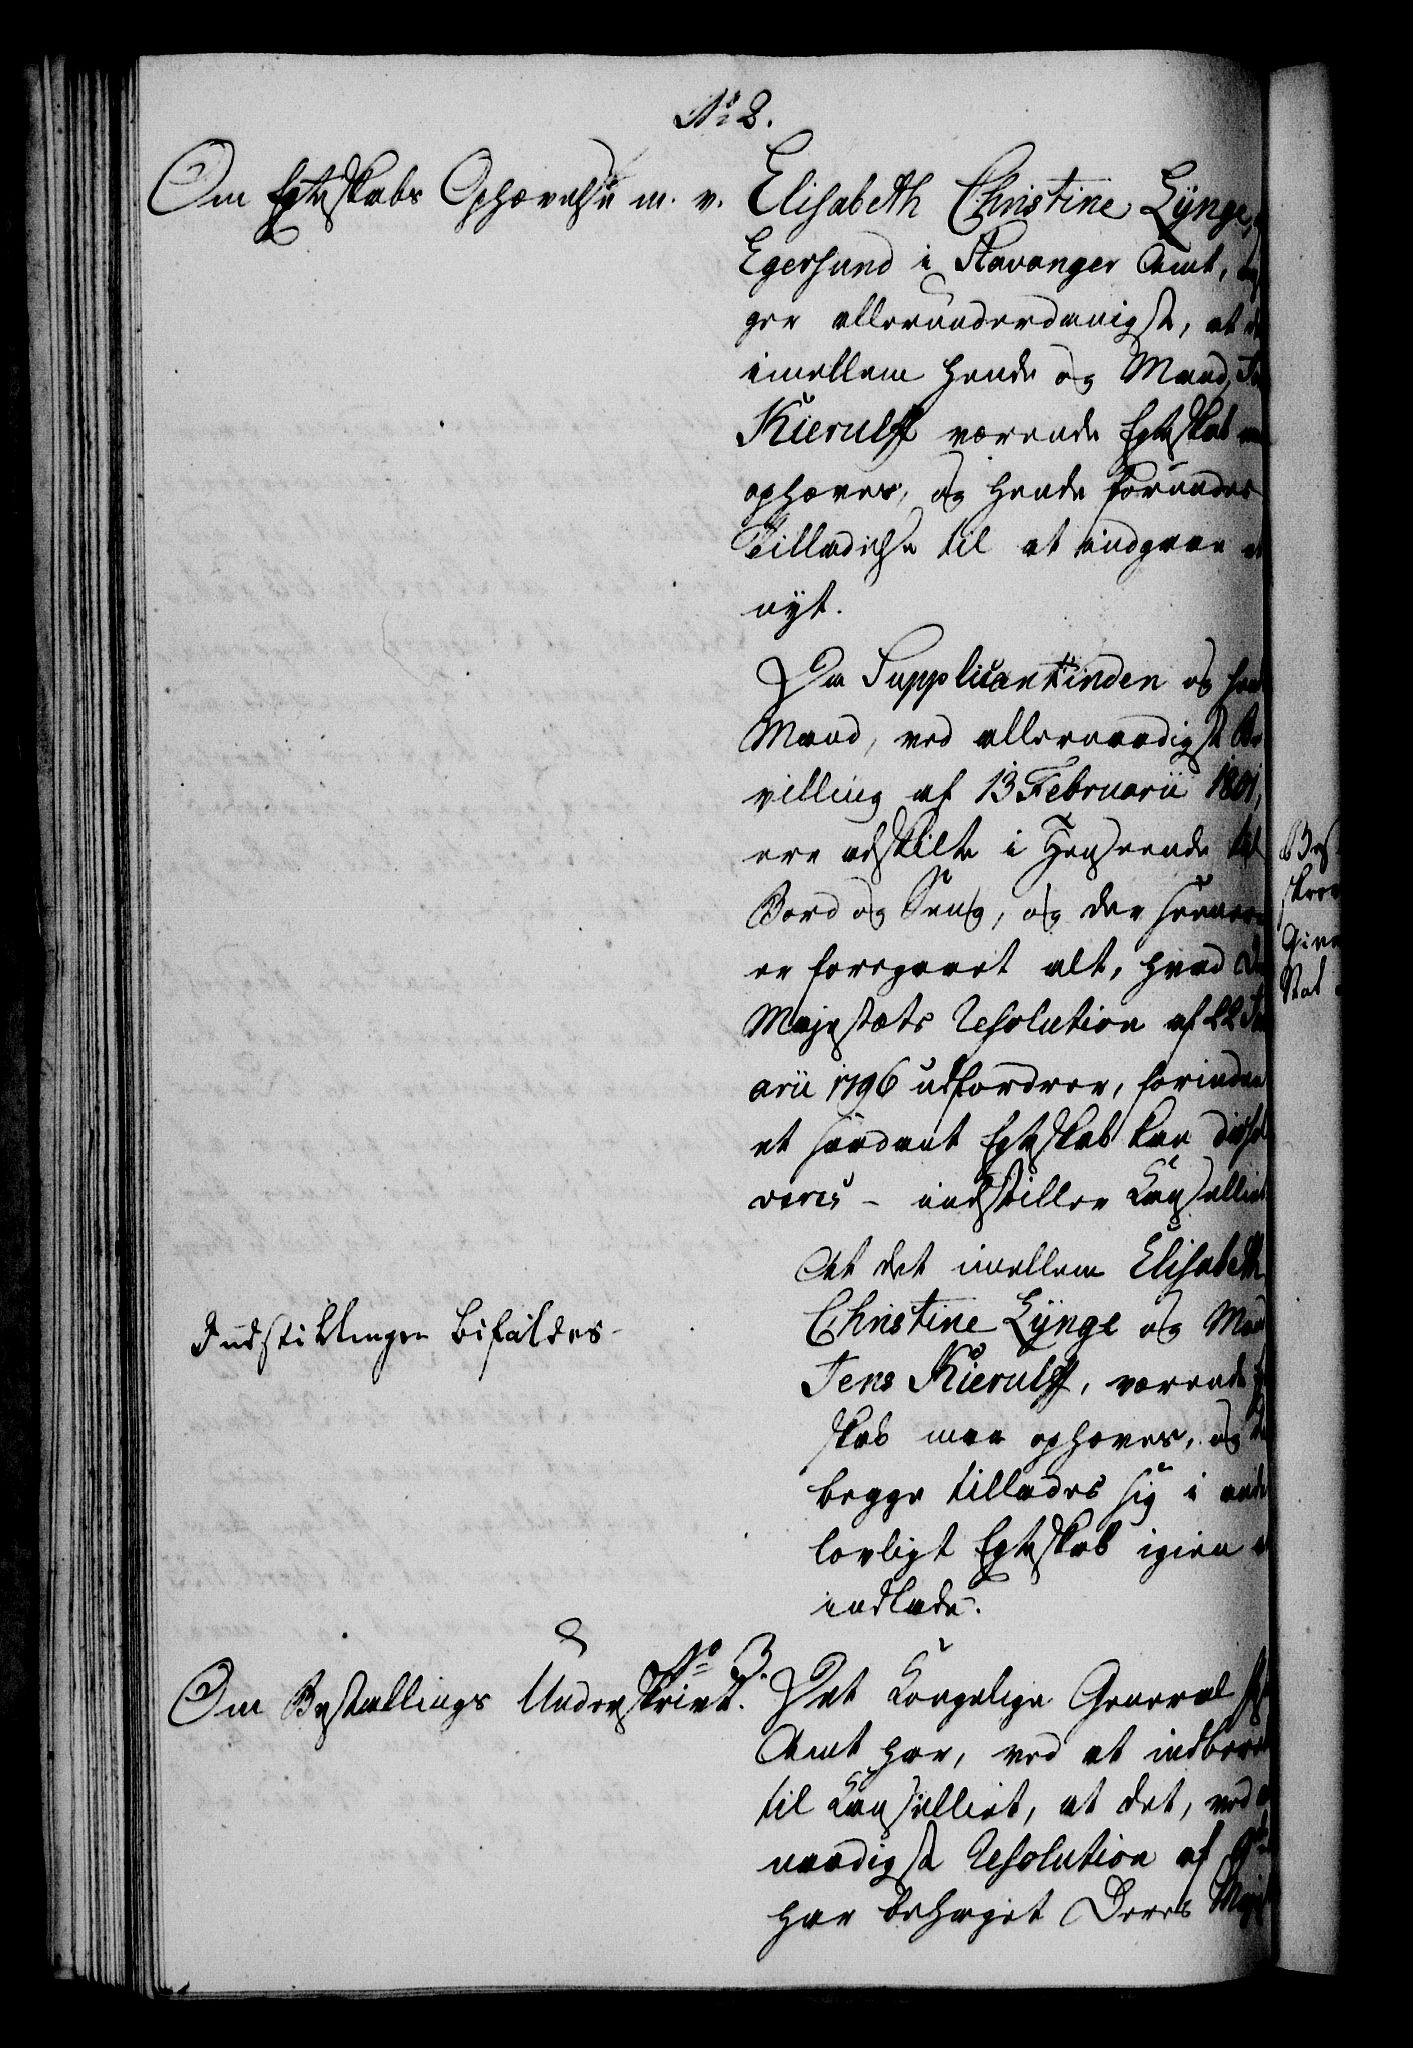 No 2.
Om Egteskabs Ophævelse m. v.
Elisabeth Christine Lÿnge,
Egersund i Stavanger Amt,
ger allerunderdanigst, at
imellem hende og Mand,
Kierulff værende Egteskab
ophæves, og hende forundes
Tilladelse til at indgaae
nyt.
Da Supplicantinden og
Mand, ved allernaadigst Be
villing af 13 Februarii 1801,
ere adskilte i Henseende til
Bord og Seng, og der
er foregaaet alt, hvad
Majestæts Resolution af 22
arii 1796 udfordrer, forinden
et saadant Egteskab kan
veres - indstiller Cancelliet
At det imellem Elisabeth
Christine Lÿnge og
Jens Kierulff, værende
skab maa ophæves, og
begge tillades sig i
lovligt Egteskab igien
indlade.
Indstillingen bifaldes
No 3.
Om Bestallings Underskrivt.
Det Kongelige General
Amt har, ved at
til Cancelliet, at det, ved
naadigst Resolution af
har behaget Deres